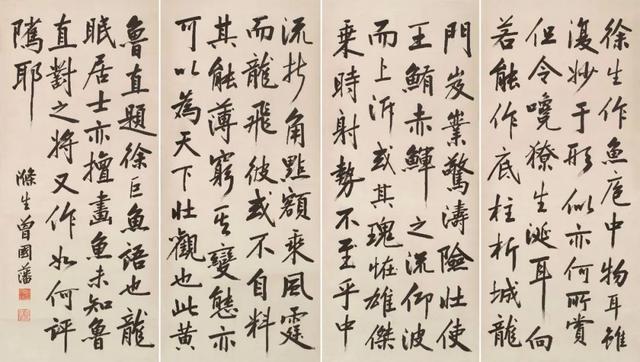 徐生作魚庖中物耳雖
復妙于形似亦何所賞
但令嚵獠生涎耳向
若能作底柱析城龍
門岌業驚濤險壯使
王鮪赤鯶之流仰波
而上泝或其瑰恠雄傑
乘時射勢不至乎中
流折角點額乘風霆
而龍飛彼或不自料
其能薄窮其變態亦
可以為天下壯觀也此黃
魯直題徐巨魚語也龍
眠居士亦擅畫魚未知魯
直對之將又作如何評
隲耶
滌生曾國藩